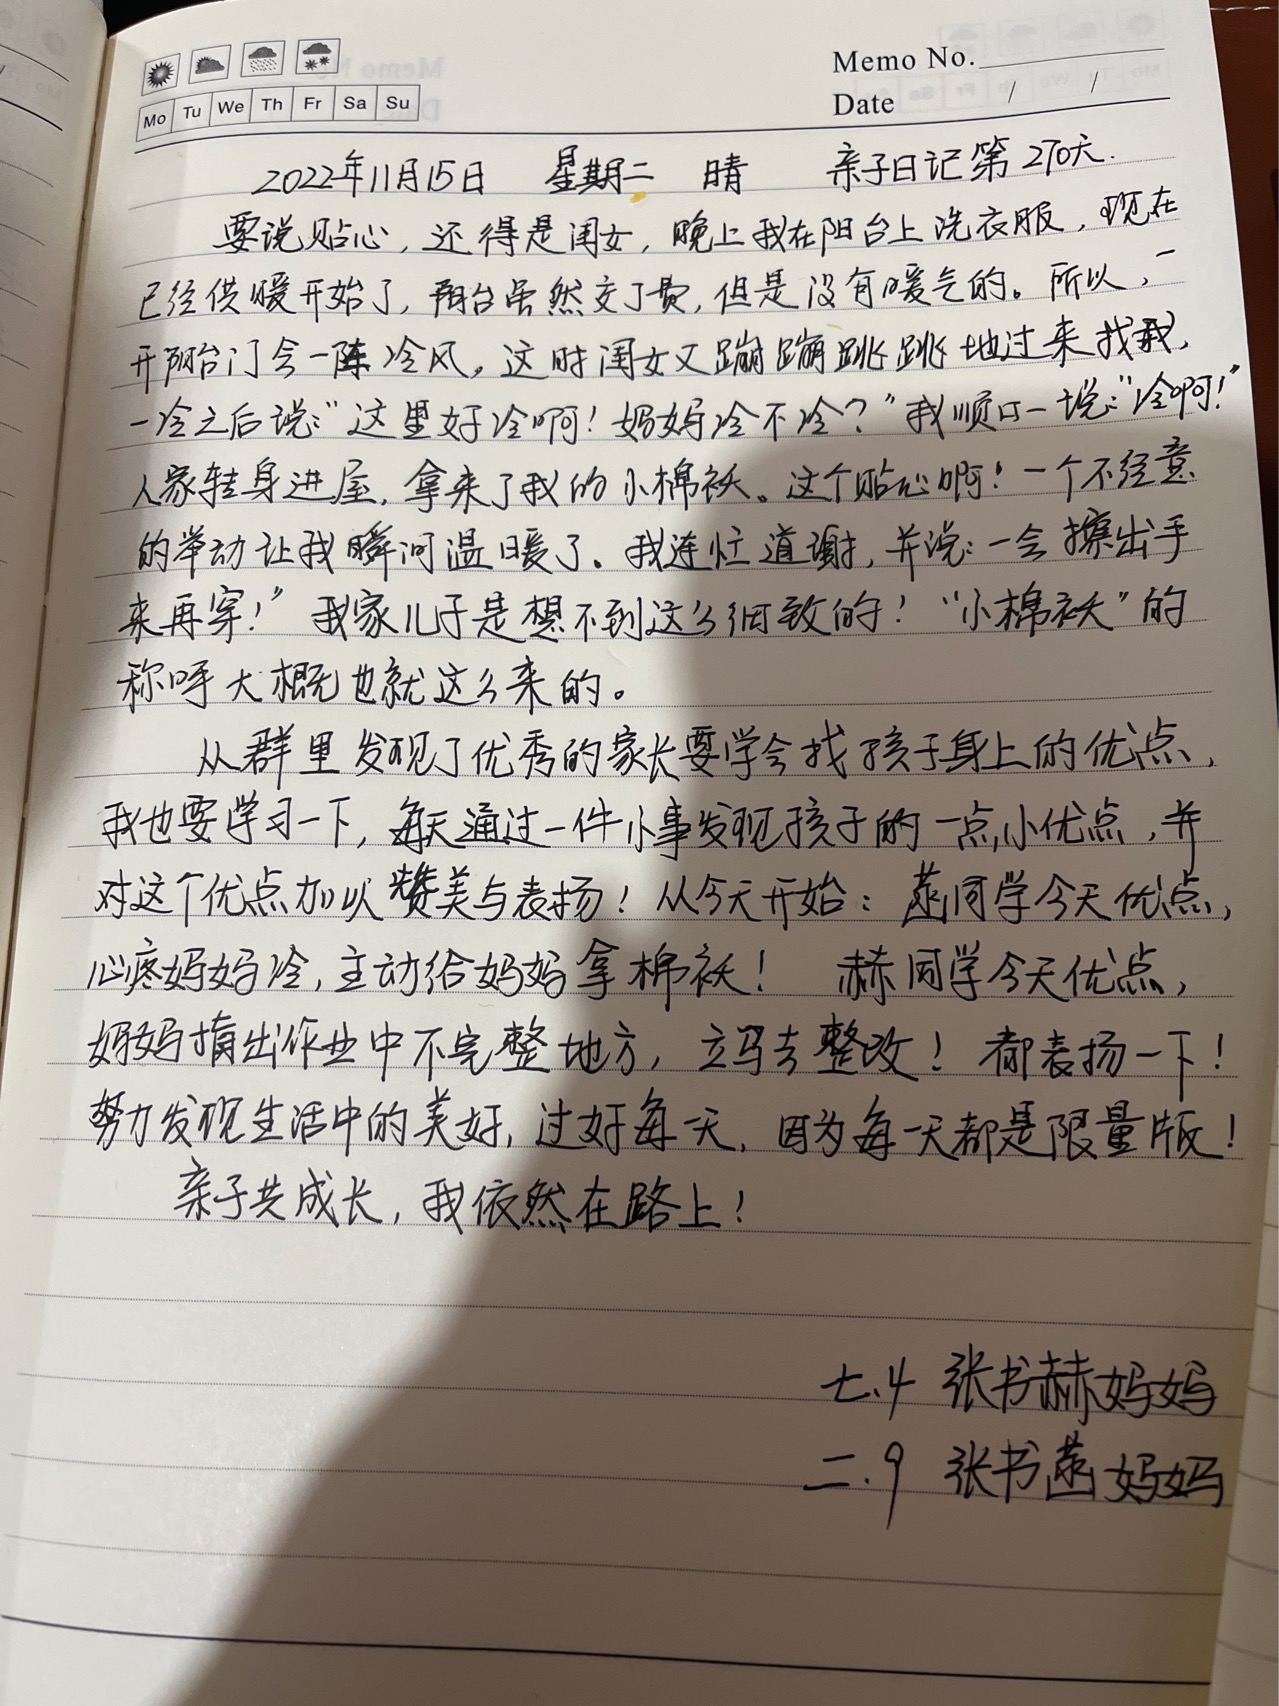 Memo No.
Date / /
Mo Tu We Th Fr Sa Su
2022年11月15日 星期二 晴 亲子日记第270天.
要说贴心，还得是闺女，晚上我在阳台上洗衣服，现在
已经供暖开始了，阳台虽然交了费，但是没有暖气的。所以，一
开阳台门会一阵冷风。这时闺女又蹦蹦跳跳地过来找我，
一冷之后说：“这里好冷啊！妈妈冷不冷？”我顺口一说：“冷啊！”
人家转身进屋，拿来了我的小棉袄。这个贴心啊！一个不经意
的举动让我瞬间温暖了。我连忙道谢，并说：一会擦出手
来再穿！”我家儿子是想不到这么细致的！“小棉袄”的
称呼大概也就这么来的。
从群里发现了优秀的家长要学会找孩子身上的优点，
我也要学习一下，每天通过一件小事发现孩子的一点小优点，并
对这个优点加以赞美与表扬！从今天开始：菡同学今天优点，
心疼妈妈冷，主动给妈妈拿棉袄！ 赫同学今天优点，
妈妈指出作业中不完整地方，立马去整改！都表扬一下！
努力发现生活中的美好，过好每一天，因为每一天都是限量版！
亲子共成长，我依然在路上！
七.4 张书赫妈妈
二.9 张书菡妈妈